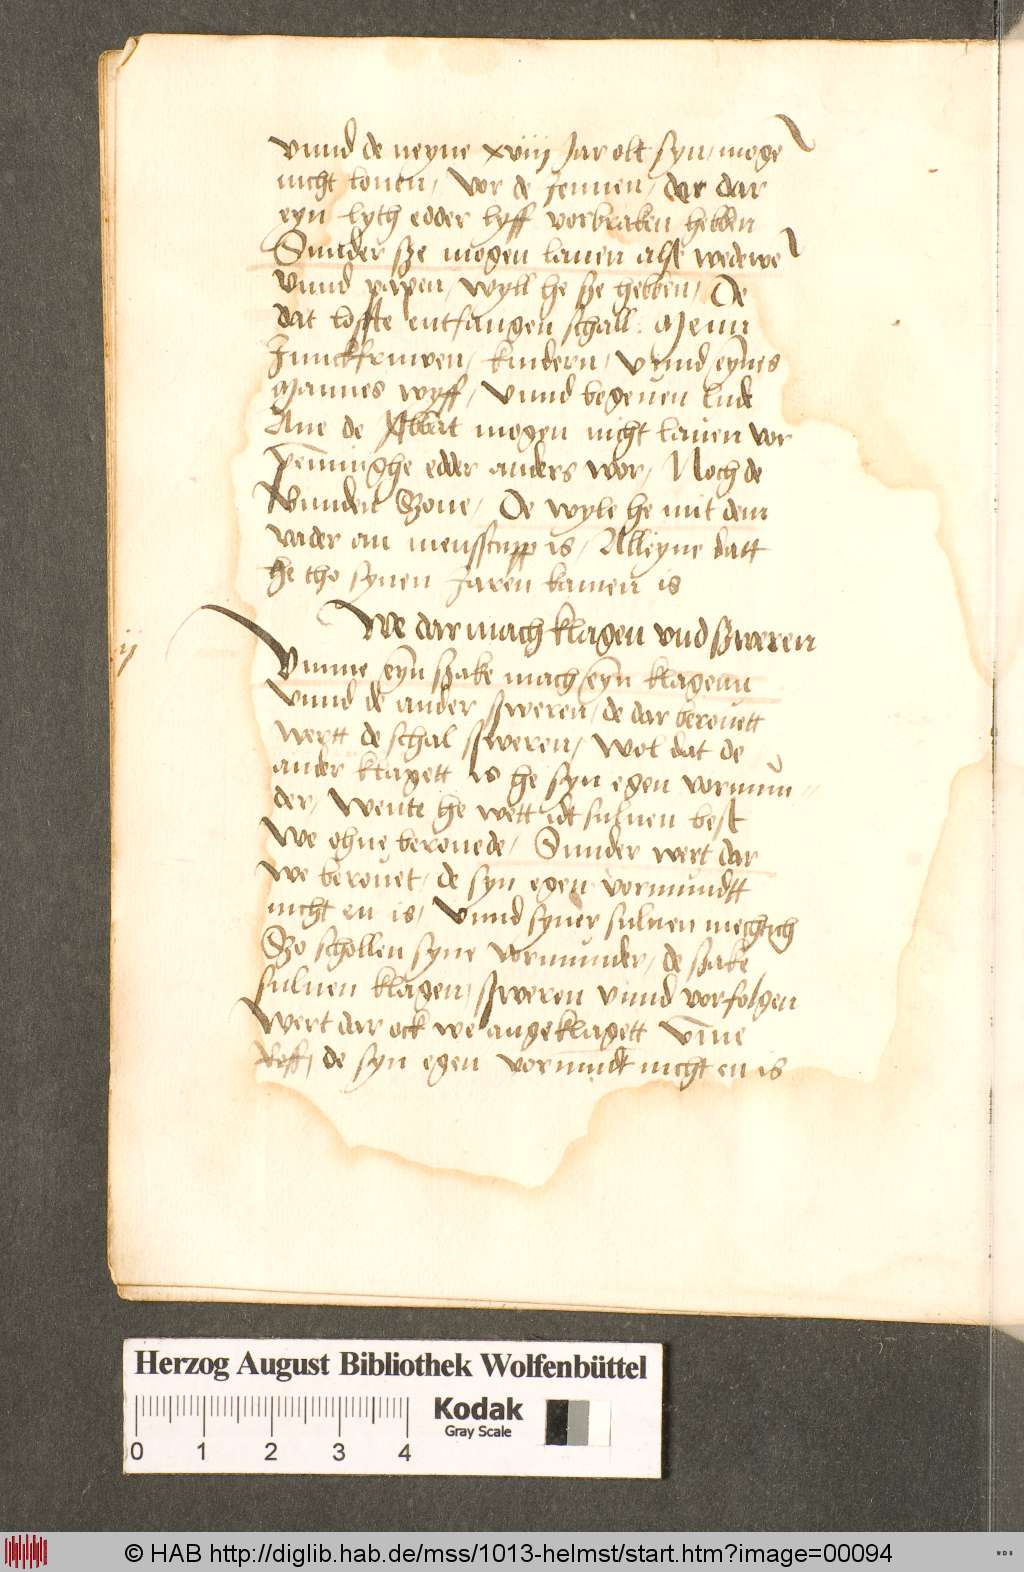 vnnd de neyne xviij Jar olt syn, moge
nicht louen, vor de Jennen, der dar
eyn lyth edder lyff vorbraken hebben
Sunder sze mogen lauen alsz wedewe
Vnnd papen, wyll he sze hebben, De
dat loffte entfangen schall. Menn
Junckfruwen, kindern, Vnnd eynes
Mannes wyff, Vnnd begeuen lude
Ane de Abbat mogen nicht lauen vor
penninghe edder anders wor, Noch de
Szone, De wyle he mit dem
vader an mensscupp is, Alleyne datt
he tho synen Jaren kamen is
We dar mach klagen vnd szweren
ij
Vmme eyn szake mach eyn klagenn
Vnnd de ander szweren, de dar berouett
wertt de schal szweren, Wol dat de
ander klagett is he syn egen vormun
der, Wente he wett idt suluen best
We ohne berouede, Sunder wert dar
we berouet, de syn egen vormundtt
nicht en is, Vnnd syner suluen mechtich
Szo schollen syne vormunder, de szake
suluen klagen, szweren vnnd vorfolgen
Wert dar ock we angeklagett vmme
de syn egen vormundt nicht en is
Herzog August Bibliothek Wolfenbüttel
Kodak
Gray Scale
0 1 2 3 4
© HAB http://diglib.hab.de/mss/1013-helmst/start.htm?image=00094